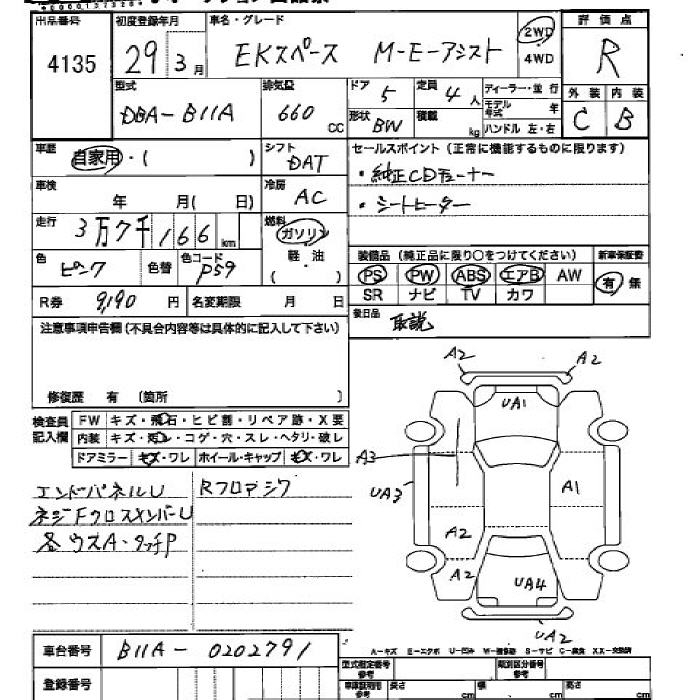 出品番号 初度登録年月 車名・グレード 評価点
4135 29年3月 EKスペース M-E-アシスト 2WD 4WD R
型式 排気量 ドア 定員 ディーラー・並行 外装 内装
DBA-B11A 660 CC 5 4人 モデル年式 年 C B
形状 BW 積載 kg ハンドル 左・右
車歴 自家用・( ) シフト DAT セールスポイント(正常に機能するものに限ります)
・純正CDチューナー
車検 年 月( 日) 冷房 AC ・シートヒーター
走行 3万7千166km 燃料 ガソリン 軽・油 ( )
色 ピンク 色替 色コード P59 装備品(純正品に限り○をつけてください) 新車保証書
PS PW ABS エアB AW 有・無
SR ナビ TV カワ
R券 9,190円 名変期限 月 日 後日品 取説
注意事項申告欄(不具合内容等は具体的に記入して下さい)
修復歴 有 〔箇所 〕
検査員記入欄 FW キズ・飛石・ヒビ割・リペア跡・X要
内装 キズ・汚レ・コゲ・穴・スレ・ヘタリ・破レ
ドアミラー キズ・ワレ ホイール・キャップ キズ・ワレ
エンドパネルU Rフロアシワ
ネジFクロスメンバーU
各ウスA・タッチP
A2 A2
UA1
A3 UA3 A1
A2
A2 UA4
UA2
車台番号 B11A-0202791
A-キズ E-エクボ U-凹み
型式指定番号 参考 類別区分番号 参考
登録番号 長さ cm 幅 cm 高さ cm